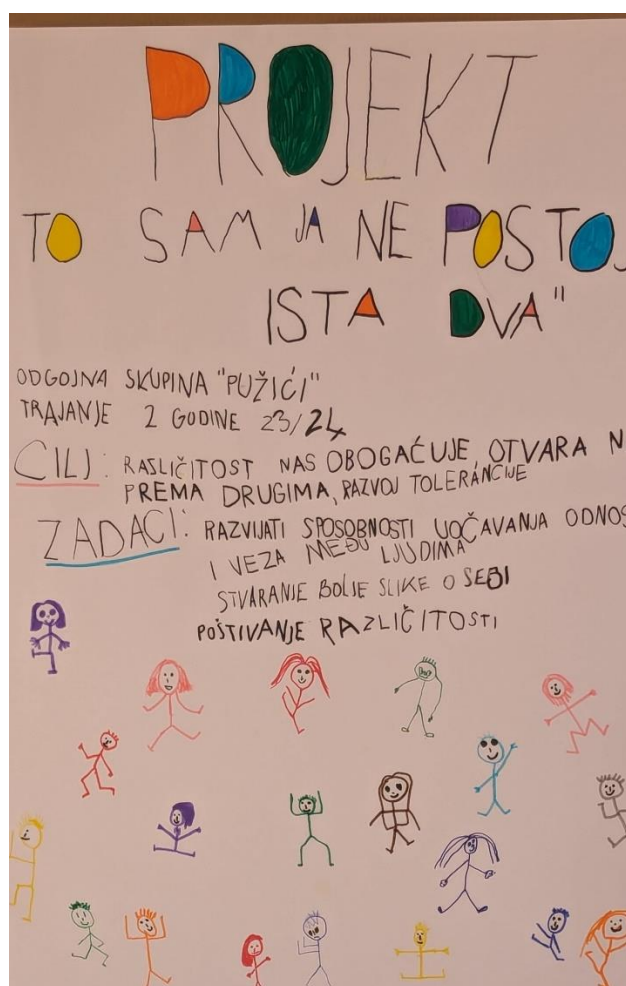 PROJEKT
TO SAM JA NE POSTOJ
ISTA DVA"
ODGOJNA SKUPINA "PUŽIĆI"
TRAJANJE 2 GODINE 23/24
CILJ: RASLIČITOST NAS OBOGAĆUJE, OTVARA N
PREMA DRUGIMA, RAZVOJ TOLERÁNCIJE
ZADACI: RAZVIJATI SPOSOBNOSTI UOČAVANJA ODNOS
I VEZA MEĐU LJUDIMA
STVARANJE BOLJE SLIKE O SEBI
POŠTIVANJE RAZLIČITOSTI